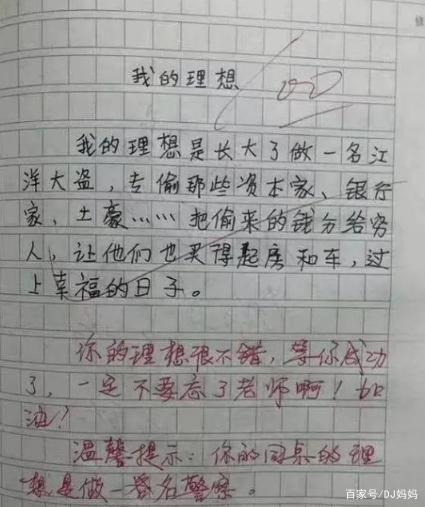 我的理想
100
我的理想是长大了做一名江
洋大盗，专偷那些资本家、银行
家、土豪……把偷来的钱分给穷
人，让他们也买得起房和车，过
上幸福的日子。
你的理想很不错，等你成功
了，一定不要忘了老师啊！加
油！
温馨提示：你的同桌的理
想是做一名警察。
百家号/DJ妈妈